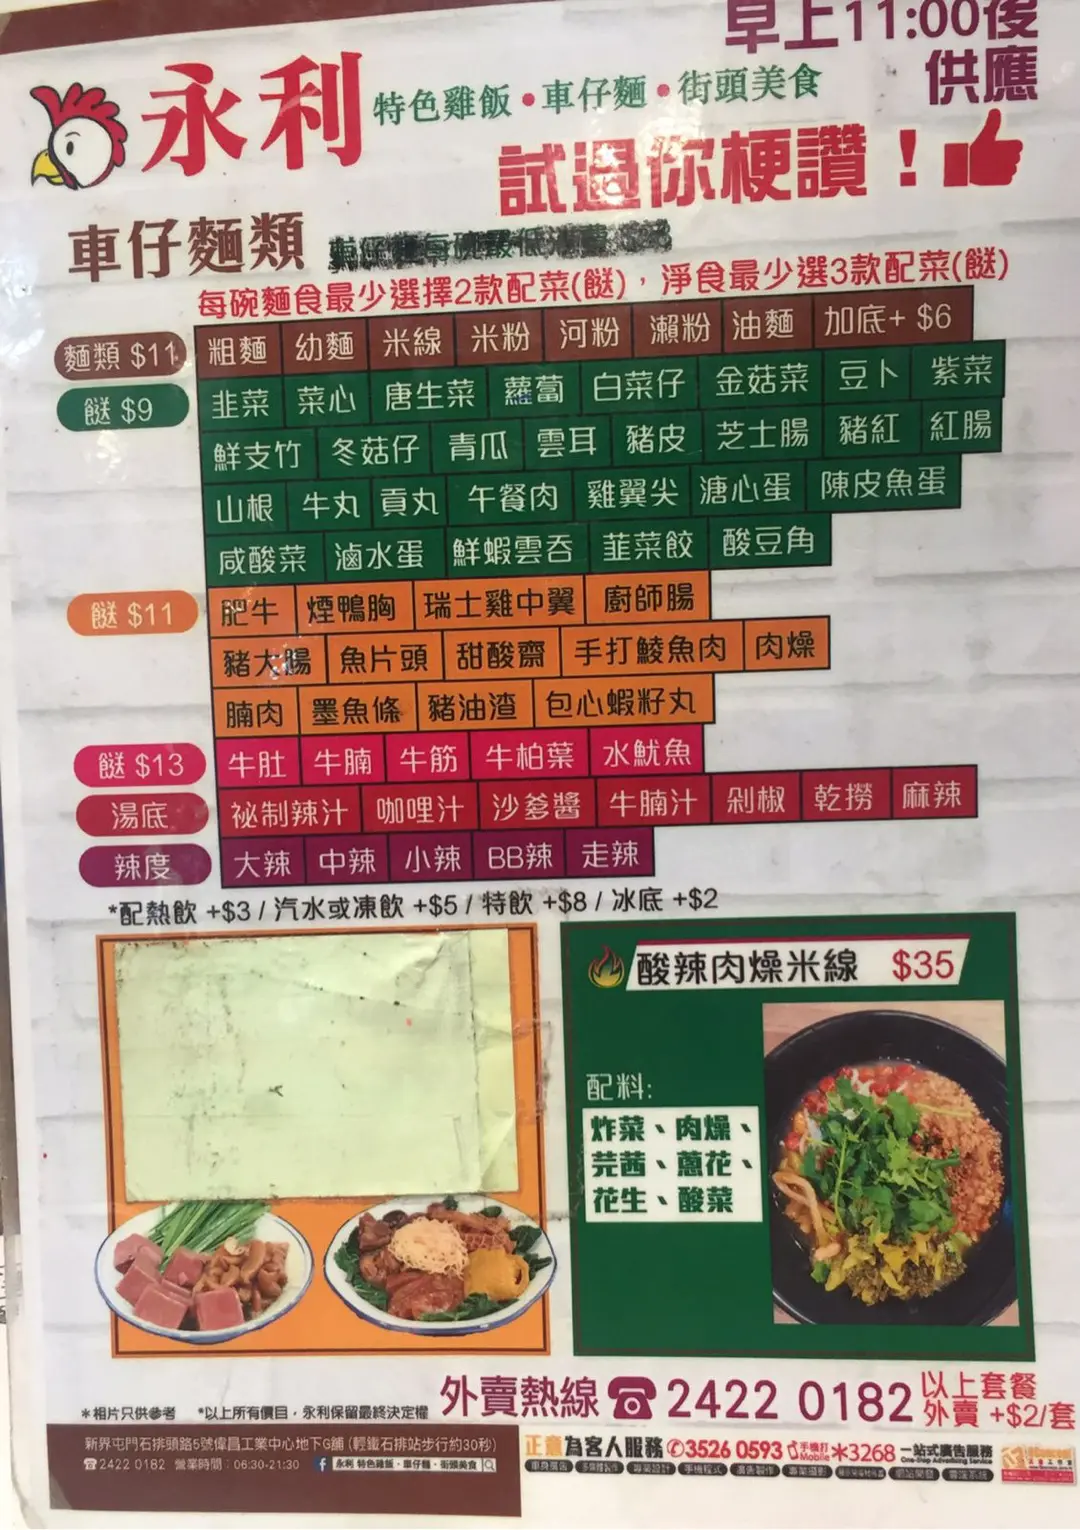 早上11:00後
供應
永利
特色雞飯•車仔麵•街頭美食
試過你梗讚！
車仔麵類
每碗麵食最少選擇2款配菜(餸)，淨食最少選3款配菜(餸)
麵類 $11 粗麵 幼麵 米線 米粉 河粉 瀨粉 油麵 加底+ $6
餸 $9 韭菜 菜心 唐生菜 蘿蔔 白菜仔 金菇菜 豆卜 紫菜
鮮支竹 冬菇仔 青瓜 雲耳 豬皮 芝士腸 豬紅 紅腸
山根 牛丸 貢丸 午餐肉 雞翼尖 溏心蛋 陳皮魚蛋
咸酸菜 滷水蛋 鮮蝦雲吞 韮菜餃 酸豆角
餸 $11 肥牛 煙鴨胸 瑞士雞中翼 廚師腸
豬大腸 魚片頭 甜酸齋 手打鯪魚肉 肉燥
腩肉 墨魚條 豬油渣 包心蝦籽丸
餸 $13 牛肚 牛腩 牛筋 牛柏葉 水魷魚
湯底 祕制辣汁 咖哩汁 沙爹醬 牛腩汁 剁椒 乾撈 麻辣
辣度 大辣 中辣 小辣 BB辣 走辣
*配熱飲 +$3 / 汽水或凍飲 +$5 / 特飲 +$8 / 冰底 +$2
酸辣肉燥米線 $35
配料:
炸菜、肉燥、
芫茜、蔥花、
花生、酸菜
外賣熱線 ☎ 2422 0182
以上套餐
外賣 +$2/套
*相片只供參考 *以上所有價目，永利保留最終決定權
新界屯門石排頭路5號偉昌工業中心地下G舖 (輕鐵石排站步行約30秒)
☎2422 0182 營業時間：06:30-21:30 f 永利 特色雞飯・車仔麵・街頭美食
正意為客人服務 ✆3526 0593 手機打 Mobile ✱3268 一站式廣告服務
One-Stop Advertising Service